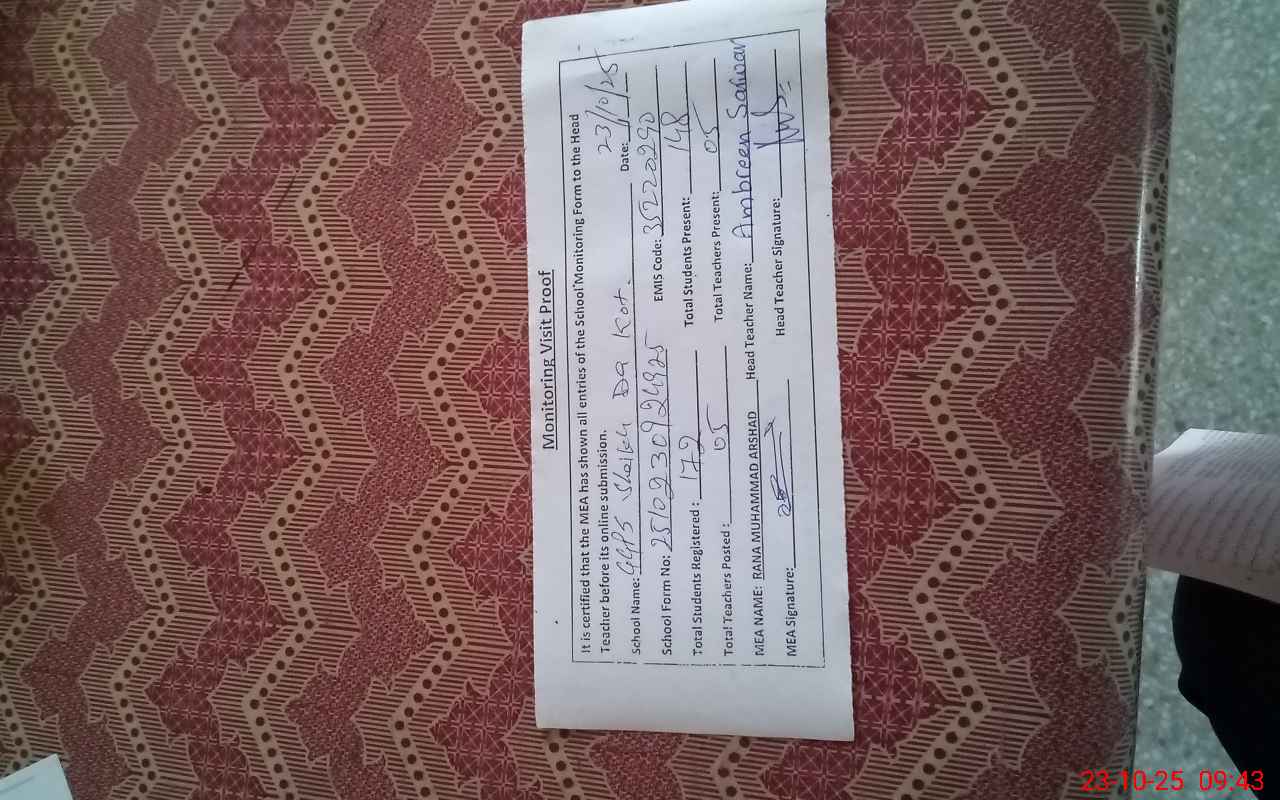 Monitoring Visit Proof
It is certified that the MEA has shown all entries of the School Monitoring Form to the Head
Teacher before its online submission.
School Name: GGPS Sheikh Da Kot. Date: 23/10/25
School Form No: 2510230924925 EMIS Code: 35220290
Total Students Registered : 172 Total Students Present: 148
Total Teachers Posted : 05 Total Teachers Present: 05
MEA NAME: RANA MUHAMMAD ARSHAD Head Teacher Name: Ambreen Sarwar
MEA Signature: Head Teacher Signature:
23-10-25 09:43